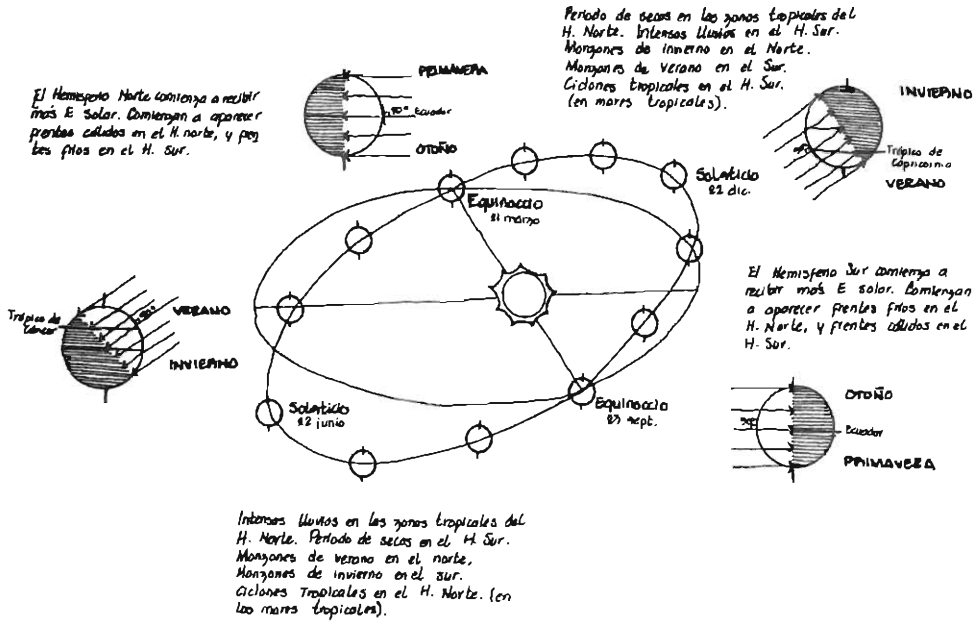 Periodo de secas en las zonas tropicales del
H. Norte. Intensas lluvias en el H. Sur.
Monzones de invierno en el Norte.
Monzones de verano en el Sur.
Ciclones tropicales en el H. Sur.
(en mares tropicales).
INVIERNO
Trópico de
Capricornio
VERANO
El Hemisferio Norte comienza a recibir
más E solar. Comienzan a aparecer
frentes cálidos en el H. norte, y fren
tes fríos en el H. Sur.
PRIMAVERA
90°
Ecuador
OTOÑO
Solsticio
22 dic.
Equinoccio
21 marzo
El Hemisferio Sur comienza a
recibir más E solar. Comienzan
a aparecer frentes fríos en el
H. Norte, y frentes cálidos en el
H. Sur.
Trópico de
Cáncer
90°
VERANO
INVIERNO
Solsticio
22 junio
Equinoccio
23 sept.
OTOÑO
90°
Ecuador
PRIMAVERA
Intensas lluvias en las zonas tropicales del
H. Norte. Periodo de secas en el H Sur.
Monzones de verano en el norte,
Monzones de invierno en el sur.
Ciclones Tropicales en el H. Norte. (en
los mares tropicales).